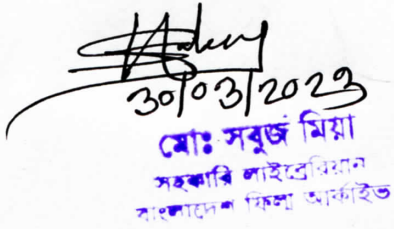 30/03/2023
মোঃ সবুজ মিয়া
সহকারি লাইব্রেরিয়ান
বাংলাদেশ ফিল্ম আর্কাইভ